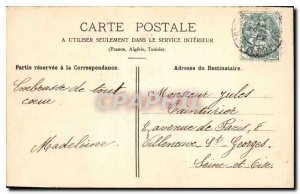 CARTE POSTALE
A UTILISER SEULEMENT DANS LE SERVICE INTÉRIEUR
(France, Algérie, Tunisie).
Partie réservée à la Correspondance.
Adresse du Destinataire.
Embrasse de tout
cœur
Madeleine
Monsieur Jules
8, avenue de Paris, 8
Villeneuve St Georges
Seine et Oise